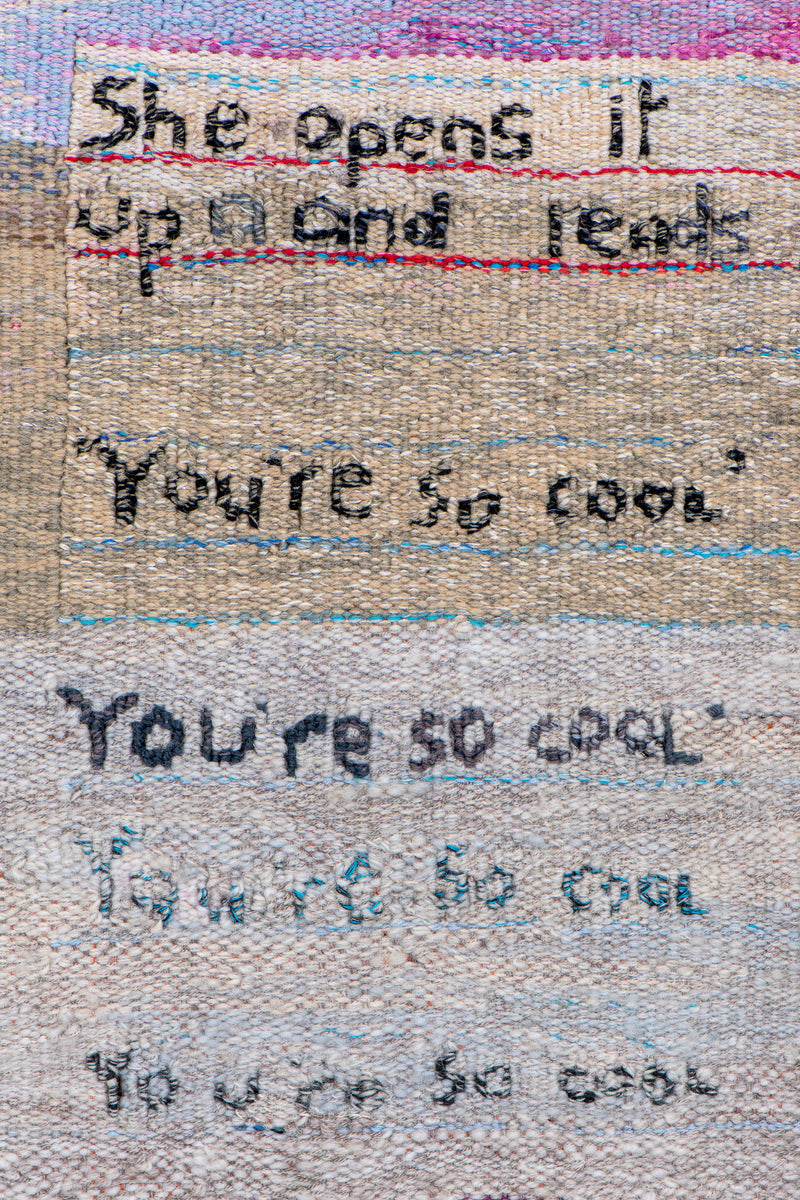 She opens it
up and reads
"You're so cool"
"You're so cool"
You're so cool
You're so cool